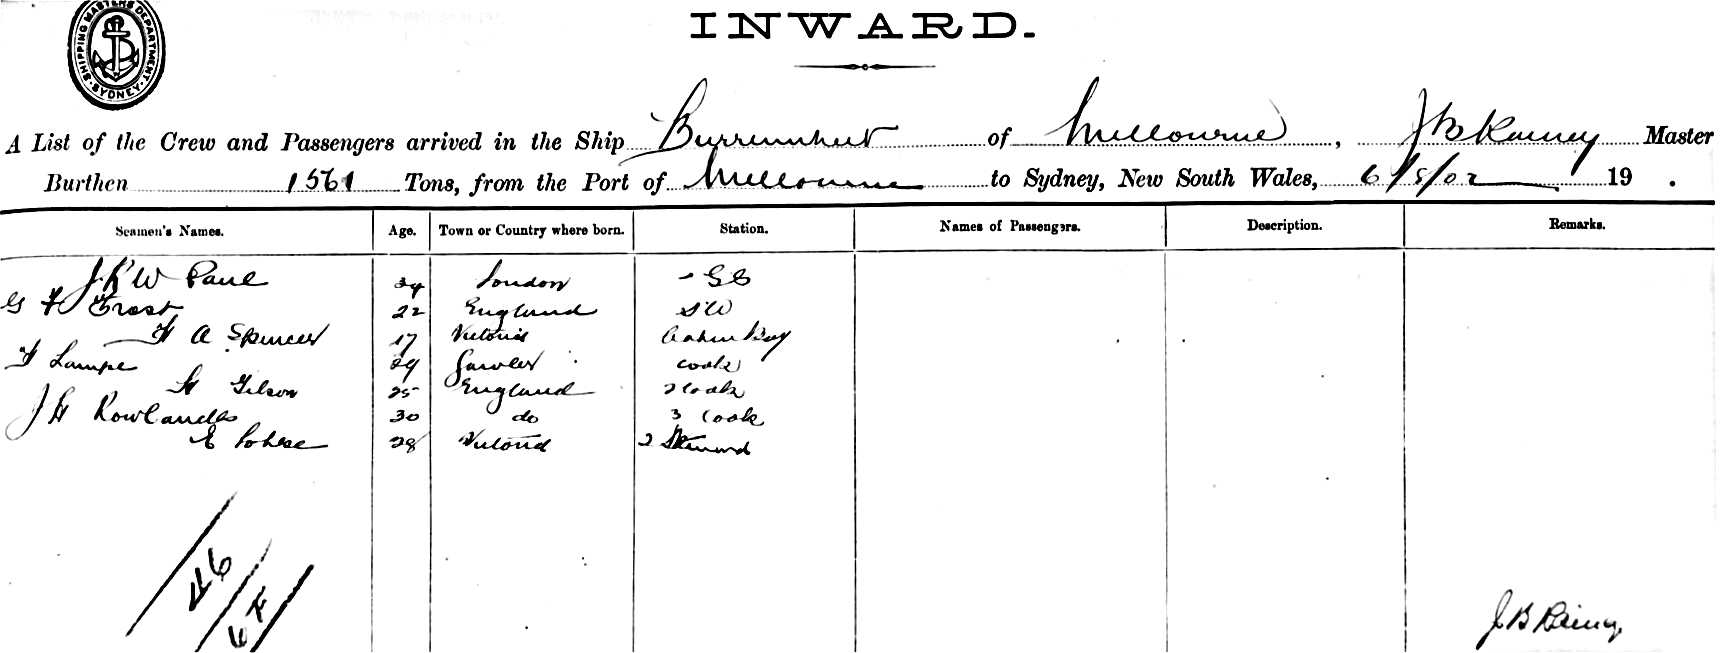 SHIPPING MASTERS DEPARTMENT. SYDNEY.
INWARD.
A List of the Crew and Passengers arrived in the Ship Burrumbeet of Melbourne, J B Rainey Master
Burthen 1561 Tons, from the Port of Melbourne to Sydney, New South Wales, 6/5/02 19 .
Seamen's Names. Age. Town or Country where born. Station. Names of Passengers. Description. Remarks.
W Paul 24 London
G F Frost 22 England SW
A Spencer 17 Victoria Cabin Boy
F Lampe 29 Gawler cook
H Gilson 25 England 2 Cook
J H Rowlands 30 do 3 Cook
E 28 Victoria 2 Steward
46
67
J B Rainey